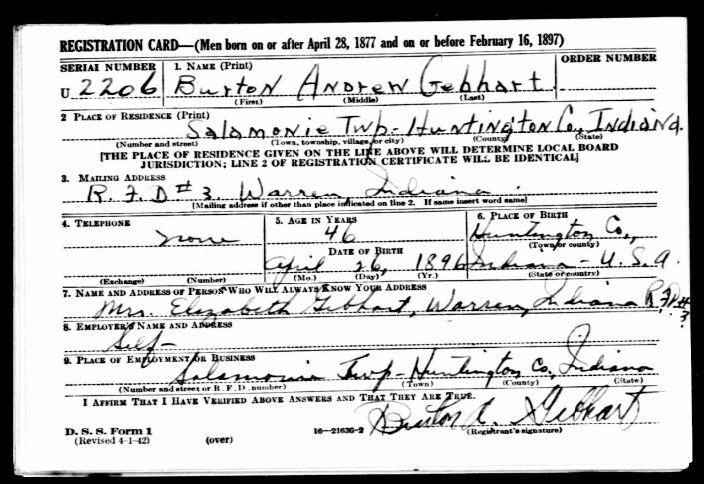 REGISTRATION CARD—(Men born on or after April 28, 1877 and on or before February 16, 1897)
SERIAL NUMBER 1. NAME (Print) ORDER NUMBER
U 2206 Burton Andrew Gebhart
(First) (Middle) (Last)
2 PLACE OF RESIDENCE (Print)
Salamonie Twp - Huntington Co., Indiana.
(Number and street) (Town, township, village, or city) (County) (State)
[THE PLACE OF RESIDENCE GIVEN ON THE LINE ABOVE WILL DETERMINE LOCAL BOARD
JURISDICTION; LINE 2 OF REGISTRATION CERTIFICATE WILL BE IDENTICAL]
3. MAILING ADDRESS
R. F. D # 3. Warren, Indiana
[Mailing address if other than place indicated on line 2. If same insert word same]
4. TELEPHONE 5. AGE IN YEARS 6. PLACE OF BIRTH
none 46 Huntington Co.,
DATE OF BIRTH (Town or county)
April 26, 1896 Indiana - U. S. A.
(Exchange) (Number) (Mo.) (Day) (Yr.) (State or country)
7. NAME AND ADDRESS OF PERSON WHO WILL ALWAYS KNOW YOUR ADDRESS
Mrs. Elizabeth Gebhart, Warren, Indiana R. F. D. # 3
8. EMPLOYER'S NAME AND ADDRESS
Self -
9. PLACE OF EMPLOYMENT OR BUSINESS
Salamonie Twp - Huntington Co, Indiana
(Number and street or R. F. D. number) (Town) (County) (State)
I AFFIRM THAT I HAVE VERIFIED ABOVE ANSWERS AND THAT THEY ARE TRUE.
Burton A. Gebhart
D. S. S. Form 1
(Revised 4-1-42) (over) 16—21630-2 (Registrant's signature)